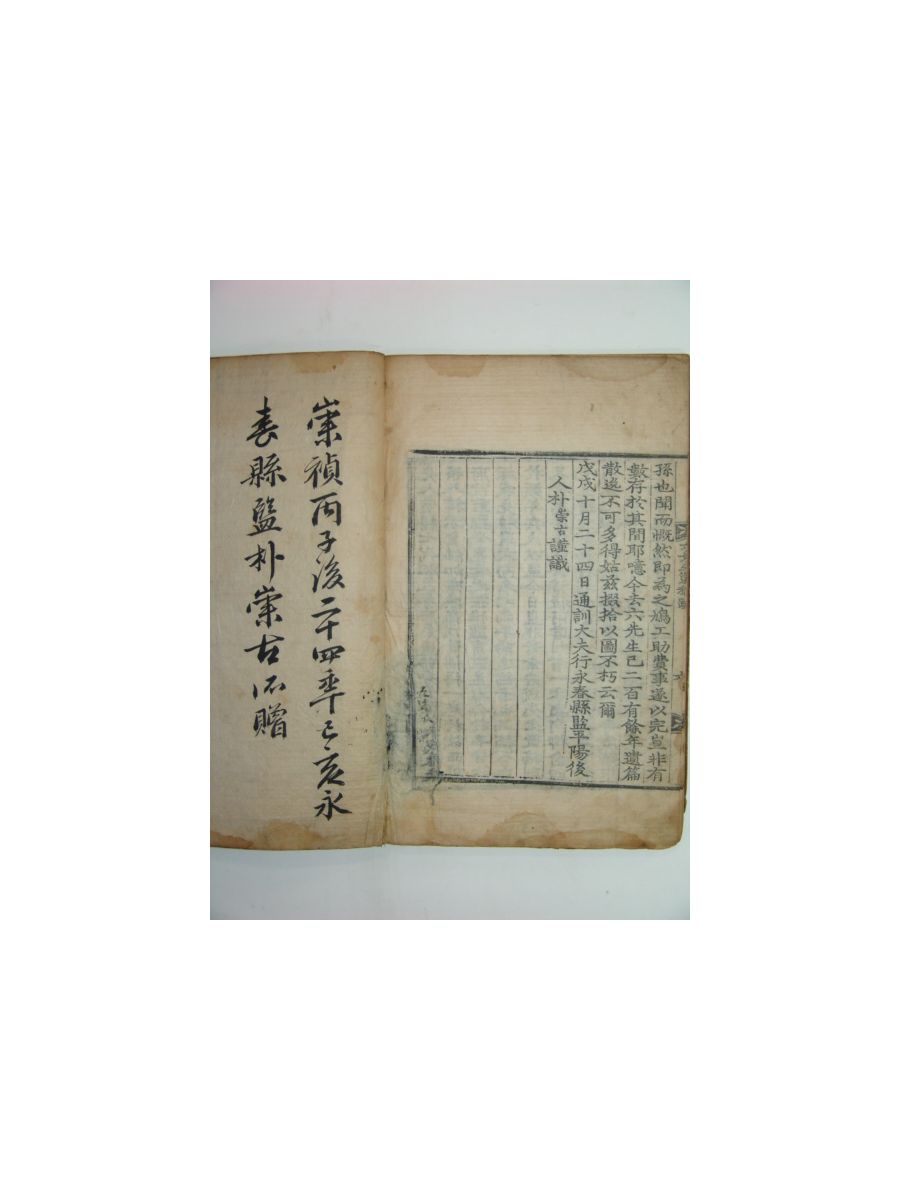 孫也聞而慨然即為之鳩工助費事遂以完豈非有
數存於其間耶噫今去六先生已二百有餘年遺篇
散逸不可多得姑茲掇拾以圖不朽云爾
戊戌十月二十四日通訓大夫行永春縣監平陽後
人朴崇古謹識
崇禎丙子後二十四年己亥永
春縣監朴崇古所贈